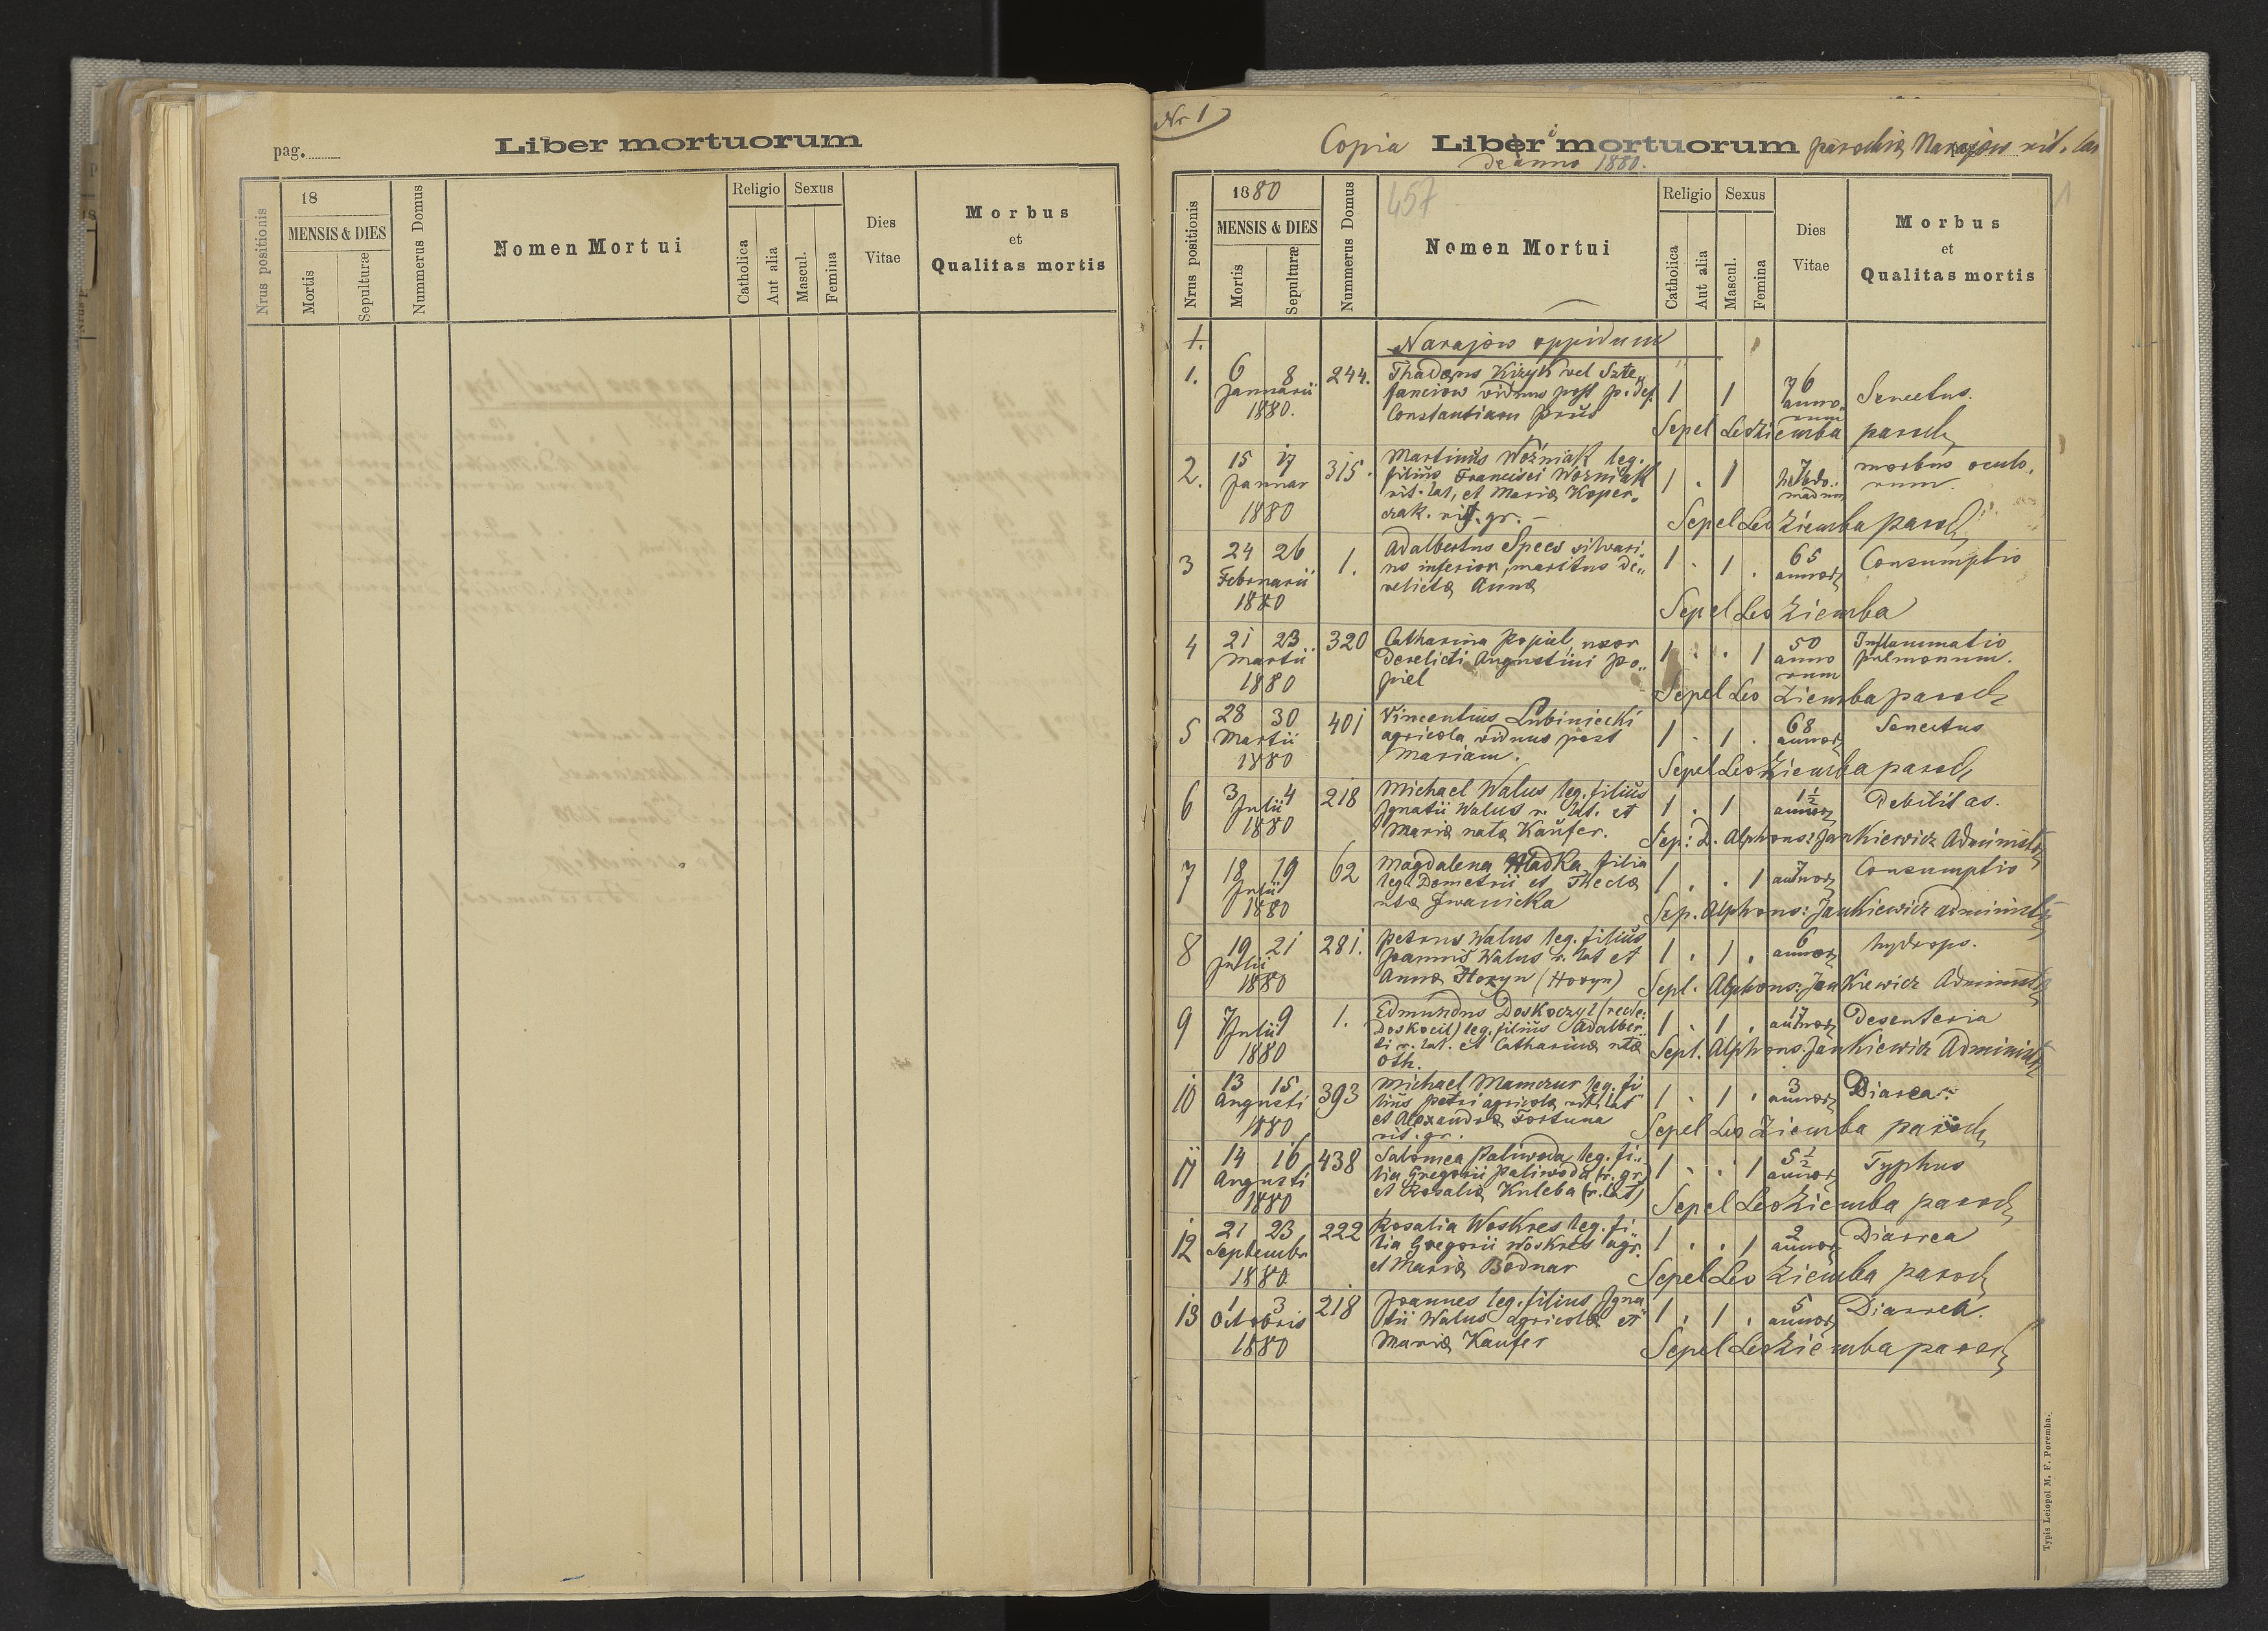 pag.
Liber mortuorum
Nrus positionis
18
MENSIS & DIES
Mortis
Sepulturæ
Nummerus Domus
Nomen Mortui
Religio
Catholica
Aut alia
Sexus
Mascul.
Femina
Dies
Vitae
Morbus
et
Qualitas mortis
Nr 1
Copia Liber mortuorum parochiæ Narajow rit. lat
de anno 1880.
Nrus positionis
1880
MENSIS & DIES
Mortis
Sepulturæ
Nummerus Domus
457
Nomen Mortui
Religio
Catholica
Aut alia
Sexus
Mascul.
Femina
Dies
Vitae
Morbus
et
Qualitas mortis
1
1.
Narajow oppidum
1. 6 8 244. Thadæus Kizyk vel Szte„ 1 1 76 Senectus.
Januarii fanciow viduus post p. def. anno„
1880. Constantiam Prus rum
Sepel Leo Ziemba paroch
2. 15 17 315. Martinus Woźniak leg. 1 . 1 7 morbus oculo„
Januar filius Francisci Woźniak hebdo„ rum
1880 rit. lat, et Mariæ Koper„ madum
czak. rit. gr. –
Sepel Leo Ziemba paroch
3 24 26 1. Adalbertus Specs silvari„ 1 . 1 . 65 Consumptio
Februarii us inferior, maritus de„ annor
1880 relictæ Annæ
Sepel Leo Ziemba
4 21 23 320 Catharina Popiel, uxor 1 . . 1 50 Inflammatio
Martii derelicti Augustini Po„ anno pulmonum.
1880 piel rum
Sepel Leo Ziemba paroch
5 28 30 401 Vincentius Lubiniecki 1 . 1 . 68 Senectus
Martii agricola viduus post annor
1880 Mariam.
Sepel Leo Ziemba paroch
6 3 4 218 Michael Walus leg. filius 1 . 1 1½ Debilitas.
Julii Ignatii Walus r. lat. et annor
1880 Mariæ natæ Kaufer.
Sep: D. Alphons: Jankiewicz Administr
7 18 19 62 Magdalena Hladka filia 1 . . 1 7 Consumptio
Julii leg. Demetrii et Theclæ annor
1880 ntæ Iwanicka
Sep. Alphons: Jankiewicz administr
8 19 21 281. Petrus Walus leg. filius 1 . 1 . 6 hydrops.
Julii Joannis Walus r. lat et annor
1880 Annæ Horyn (Horyn)
Sepl. Alphons: Jankiewicz Administr
9 7 9 1. Edmundus Doskoczyl (recte: 1 . 1 . 17 Desenteria
Julii Doskocil) leg. filius Adalber„ annor
1880 ti r. lat. et Catharinæ ntæ
Oth.
Sepl. Alphons. Jankiewicz Administr
10 13 15 393 Michael Mamczur leg. fi 1 . 1 . 3 Diarea
Augusti lius Petri agricolæ rit. lat annor
1880 et Alexandræ Fortuna
rit. gr.
Sepel Leo Ziemba paroch
11 14 16 438 Salomea Paliwoda leg. fi„ 1 . . 1 5½ Typhus
Augusti lia Gregorii Paliwoda (r. gr.) annor
1880 et Rosaliæ Kuleba (r. lat)
Sepel Leo Ziemba paroch
12 21 23 222 Rosalia Woskres leg. fi 1 . . 1 2 Diarrea
Septembr lia Gregorii Woskres agr. annor
1880 et Mariæ Bodnar
Sepel Leo Ziemba paroch
13 1 3 218 Joannes leg. filius Igna 1 . 1 . 5 Diarrea.
Octobris tii Walus agricolæ et annor
1880 Mariæ Kaufer
Sepel Leo Ziemba paroch
Typis Leiopol M. F. Poremba.